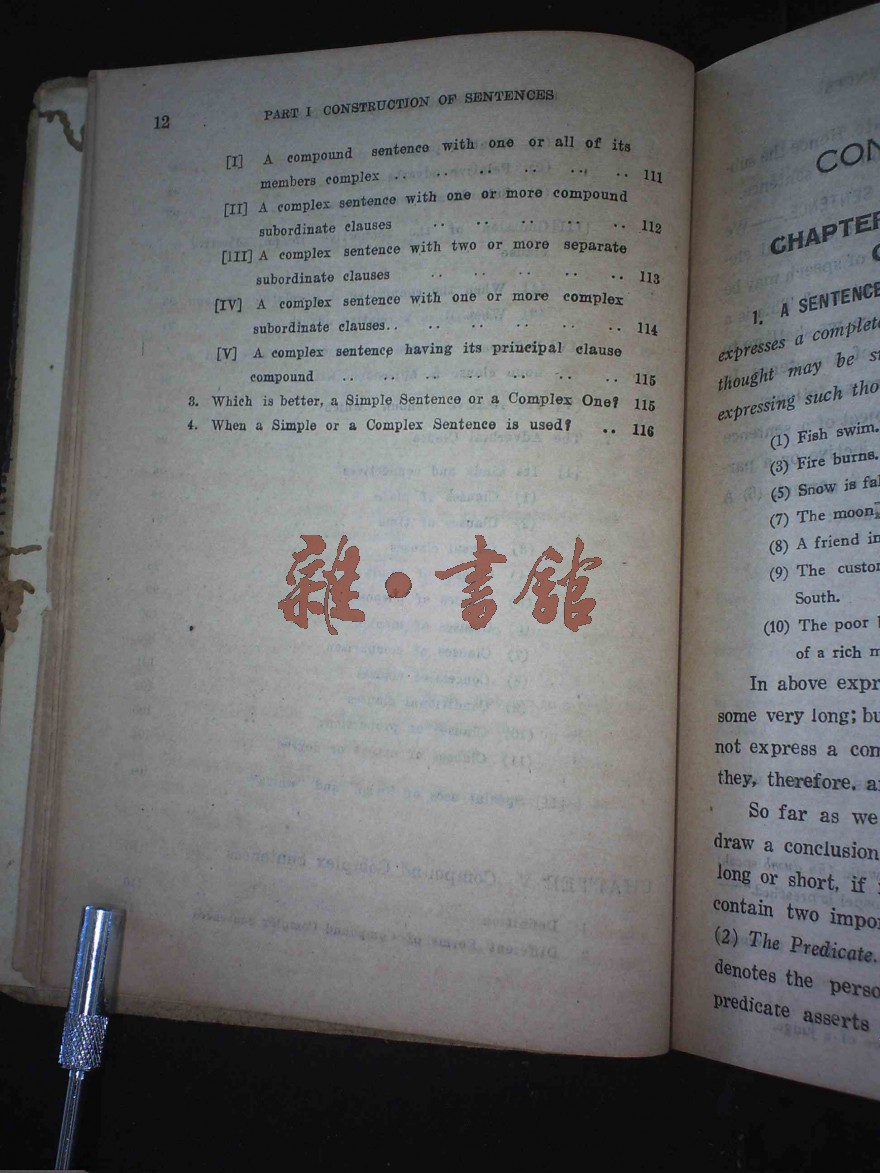 12 PART I CONSTRUCTION OF SENTENCES
[I] A compound sentence with one or all of its
members complex .. .. .. .. .. .. 111
[II] A complex sentence with one or more compound
subordinate clauses .. .. .. .. .. 112
[III] A complex sentence with two or more separate
subordinate clauses .. .. .. .. .. 113
[IV] A complex sentence with one or more complex
subordinate clauses.. .. .. .. .. .. 114
[V] A complex sentence having its principal clause
compound .. .. .. .. .. .. .. 115
3. Which is better, a Simple Sentence or a Complex One? 115
4. When a Simple or a Complex Sentence is used? .. 116
雜·書館
CHAPTER
1. A SENTENCE
expresses a
thought may be
expressing such
(1) Fish swim.
(3) Fire burns.
(5) Snow is
(7) The moon
(8) A friend
(9) The
South.
(10) The poor
of a rich
In above
some very long;
not express a
they, therefore,
So far as we
draw a conclusion
long or short, if
contain two
(2) The Predicate.
denotes the
predicate asserts